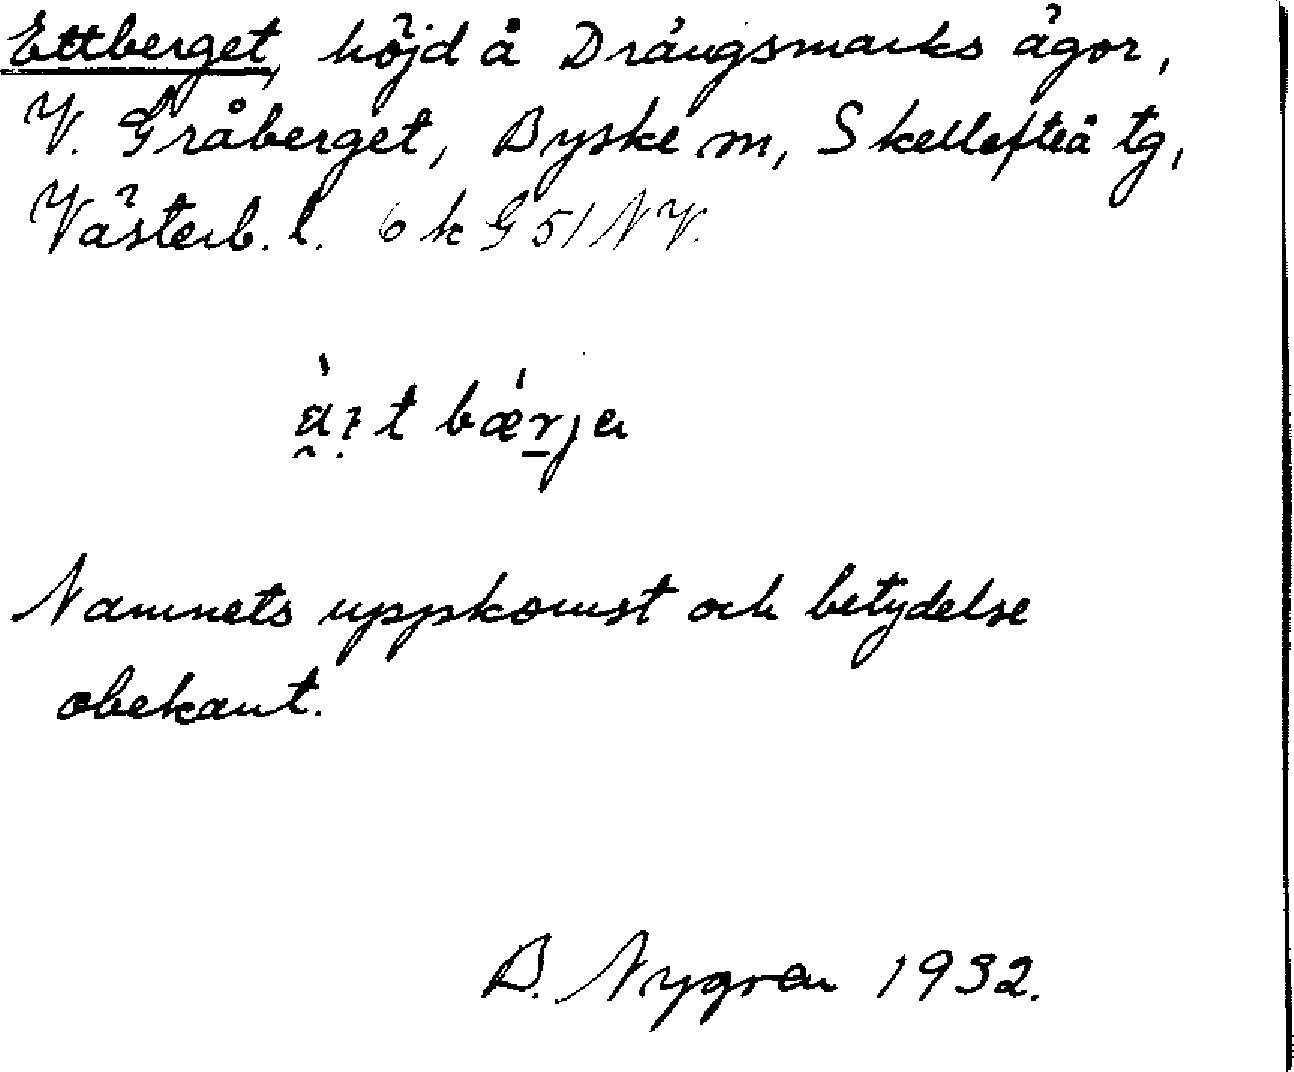 Ettberget, höjd å Drängsmarks ägor,
V. Gråberget, Byske sn, Skellefteå tg,
Västerb. l. 6 k G 51 NV.
bærja
Namnets uppkomst och betydelse
obekant.
B. Nygren 1932.